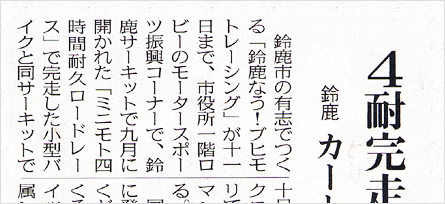 4耐完走
鈴鹿 カート
鈴鹿市の有志でつく
る「鈴鹿なう!ブヒモ
トレーシング」が十一
日まで、市役所一階ロ
ビーのモータースポー
ツ振興コーナーで、鈴
鹿サーキットで九月に
開かれた「ミニモト四
時間耐久ロードレー
ス」で完走した小型バ
イクと同サーキットで
十日
クに
リで
マン
る。
同
に発
くが
くる
イッ
属し